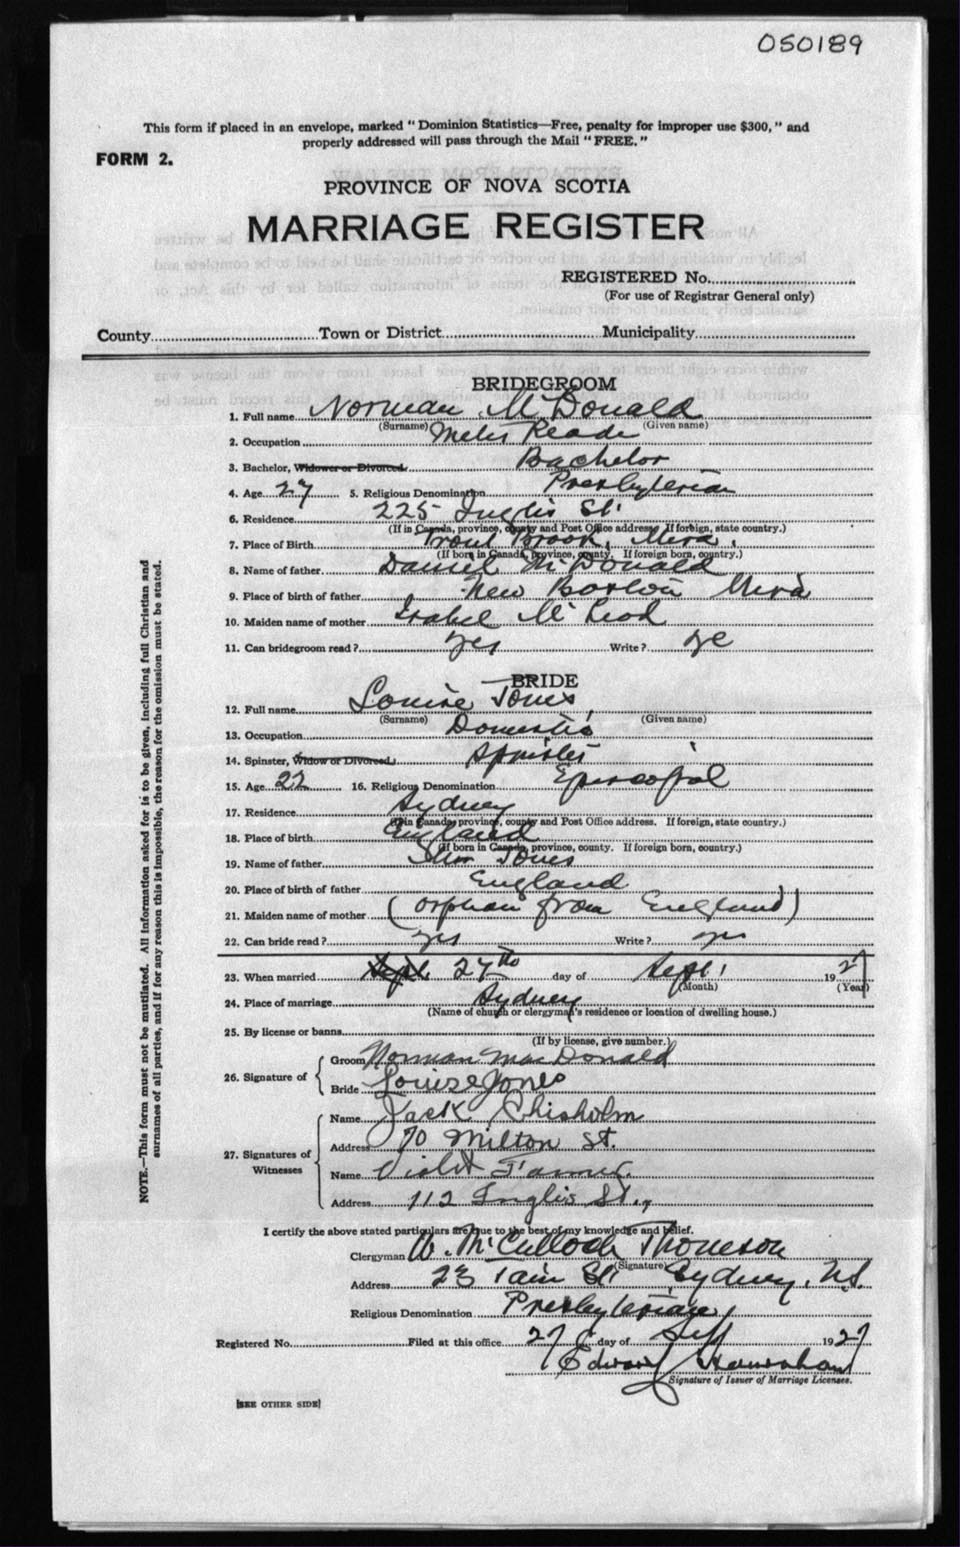 050189
This form if placed in an envelope, marked "Dominion Statistics—Free, penalty for improper use $300," and
properly addressed will pass through the Mail "FREE."
FORM 2.
PROVINCE OF NOVA SCOTIA
MARRIAGE REGISTER
REGISTERED No.
(For use of Registrar General only)
County Town or District Municipality
BRIDEGROOM
1. Full name Norman McDonald
(Surname) (Given name)
2. Occupation Meter Reader
3. Bachelor, Widower or Divorced Bachelor
4. Age 27 5. Religious Denomination Presbyterian
6. Residence 225 Inglis St.
(If in Canada, province, county and Post Office address. If foreign, state country.)
7. Place of Birth Trout Brook, Mira,
(If born in Canada, province, county. If foreign born, country.)
8. Name of father Daniel McDonald
9. Place of birth of father New Boston Mira
10. Maiden name of mother Isabel McLeod
11. Can bridegroom read? yes Write? ye
BRIDE
12. Full name Louise Jones,
(Surname) (Given name)
13. Occupation Domestic
14. Spinster, Widow or Divorced Spinster
15. Age 22 16. Religious Denomination Episcopal
17. Residence Sydney
(If in Canada, province, county and Post Office address. If foreign, state country.)
18. Place of birth England
(If born in Canada, province, county. If foreign born, country.)
19. Name of father Jones
20. Place of birth of father England
21. Maiden name of mother (orphan from England)
22. Can bride read? yes Write? yes
23. When married Sept 27th day of Sept 1927
(Month) (Year)
24. Place of marriage Sydney
(Name of church or clergyman's residence or location of dwelling house.)
25. By license or banns
(If by license, give number.)
26. Signature of Groom Norman MacDonald
Bride Louise Jones
27. Signatures of Witnesses Name Jack Chisholm
Address 70 Milton St.
Name Violet
Address 112 Inglis St.,
I certify the above stated particulars are true to the best of my knowledge and belief.
Clergyman McCulloch Thomson
(Signature)
Address 23 St Sydney, N.S.
Religious Denomination Presbyterian
Registered No. Filed at this office 27 day of Sept 1927
Edward
Signature of Issuer of Marriage Licenses.
[SEE OTHER SIDE]
NOTE.—This form must not be mutilated. All information asked for is to be given, including full Christian and
surnames of all parties, and if for any reason this is impossible, the reason for the omission must be stated.